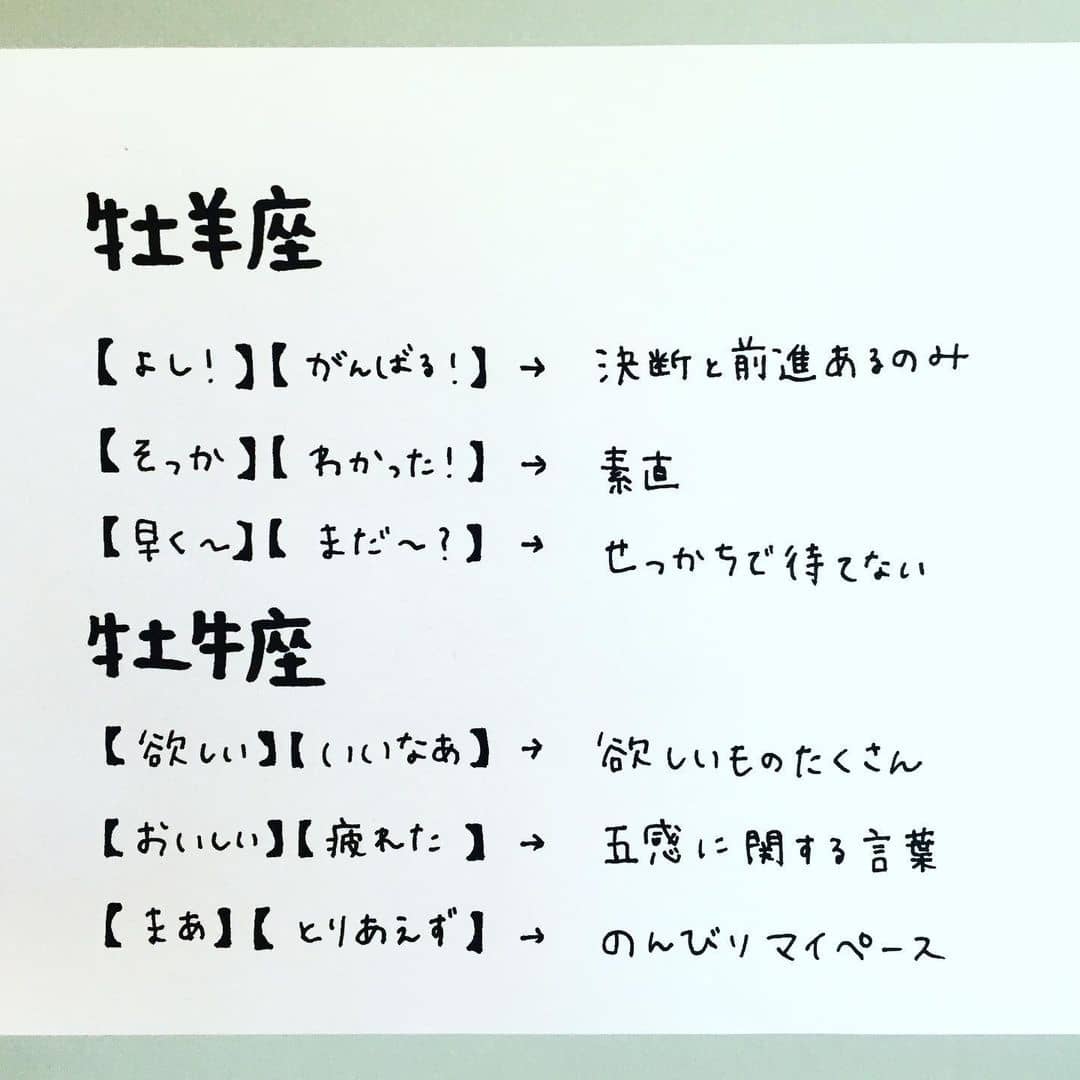 牡羊座
【よし！】【がんばる！】→ 決断と前進あるのみ
【そっか】【わかった！】→ 素直
【早く～】【まだ～？】→ せっかちで待てない
牡牛座
【欲しい】【いいなあ】→ 欲しいものたくさん
【おいしい】【疲れた】→ 五感に関する言葉
【まあ】【とりあえず】→ のんびりマイペース